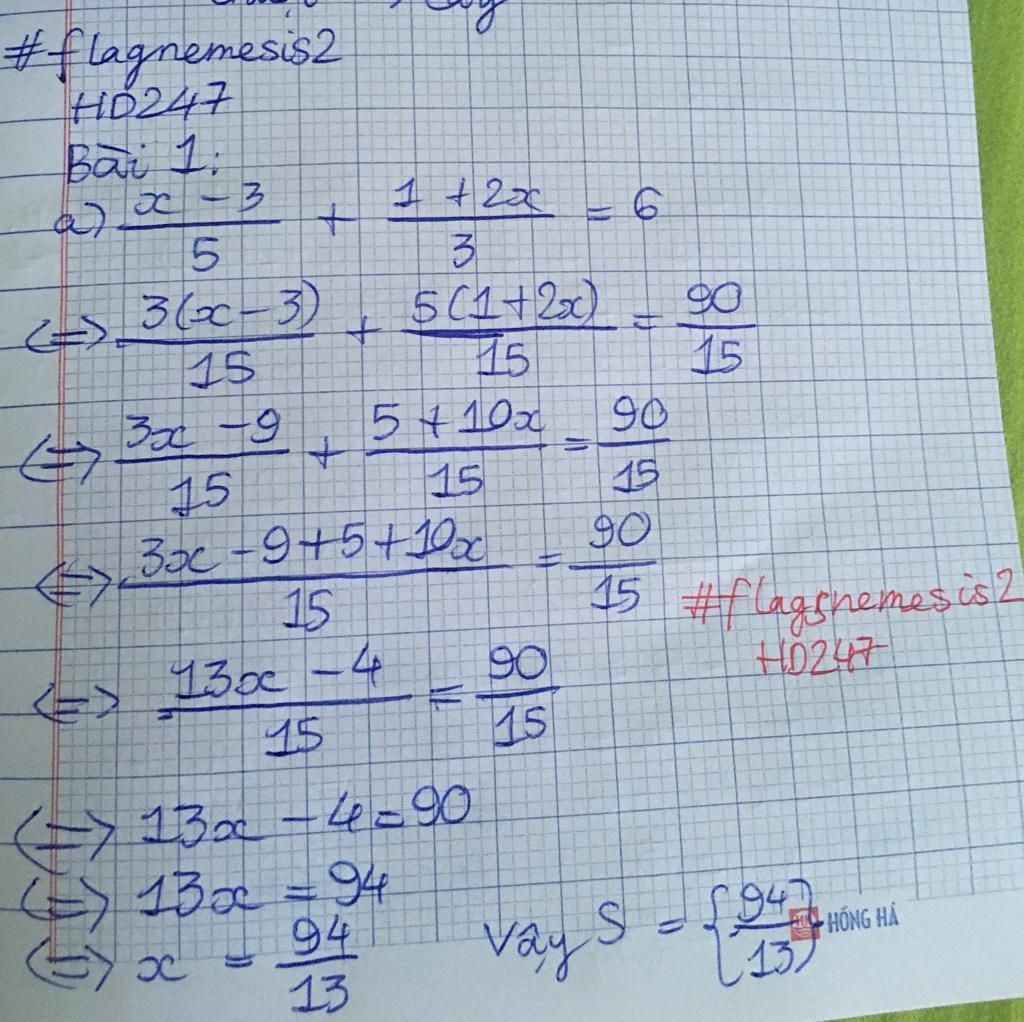 #flagnemesis2
HD247
Bài 1:
a) \frac{x - 3}{5} + \frac{1 + 2x}{3} = 6
<=> \frac{3(x - 3)}{15} + \frac{5(1 + 2x)}{15} = \frac{90}{15}
<=> \frac{3x - 9}{15} + \frac{5 + 10x}{15} = \frac{90}{15}
<=> \frac{3x - 9 + 5 + 10x}{15} = \frac{90}{15}
#flagsnemesis2
HD247
<=> \frac{13x - 4}{15} = \frac{90}{15}
<=> 13x - 4 = 90
<=> 13x = 94
<=> x = \frac{94}{13} Vậy S = {\frac{94}{13}}
HỒNG HÀ